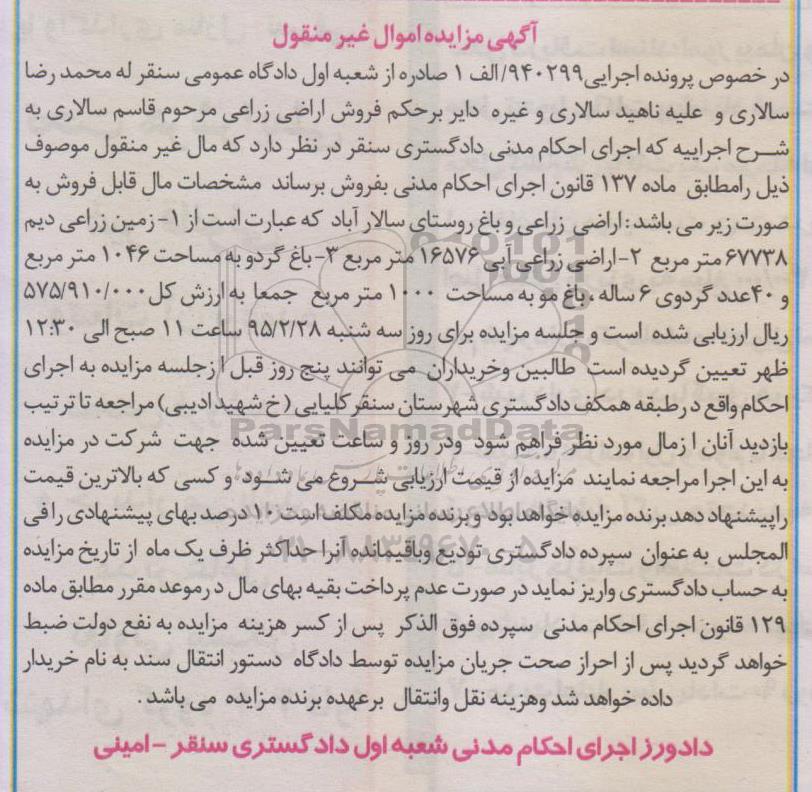 آگهی مزایده اموال غیر منقول
در خصوص پرونده اجرایی۹۴۰۲۹۹/الف ۱ صادره از شعبه اول دادگاه عمومی سنقر له محمد رضا
سالاری و علیه ناهید سالاری و غیره دایر برحکم فروش اراضی زراعی مرحوم قاسم سالاری به
شرح اجراییه که اجرای احکام مدنی دادگستری سنقر در نظر دارد که مال غیر منقول موصوف
ذیل رامطابق ماده ۱۳۷ قانون اجرای احکام مدنی بفروش برساند مشخصات مال قابل فروش به
صورت زیر می باشد: اراضی زراعی و باغ روستای سالار آباد که عبارت است از ۱- زمین زراعی دیم
۶۷۷۳۸ متر مربع ۲-اراضی زراعی آبی ۱۶۵۷۶ متر مربع ۳- باغ گردو به مساحت ۱۰۴۶ متر مربع
و ۴۰عدد گردوی ۶ ساله ، باغ مو به مساحت ۱۰۰۰ متر مربع جمعا به ارزش کل ۵۷۵/۹۱۰/۰۰۰
ریال ارزیابی شده است و جلسه مزایده برای روز سه شنبه ۹۵/۲/۲۸ ساعت ۱۱ صبح الی ۱۲:۳۰
ظهر تعیین گردیده است طالبین وخریداران می توانند پنج روز قبل ا زجلسه مزایده به اجرای
احکام واقع در طبقه همکف دادگستری شهرستان سنقر کلیایی (خ شهید ادیبی) مراجعه تا ترتیب
بازدید آنان ا زمال مورد نظر فراهم شود ودر روز و ساعت تعیین شده جهت شرکت در مزایده
به این اجرا مراجعه نمایند مزایده از قیمت ارزیابی شروع می شود و کسی که بالاترین قیمت
راپیشنهاد دهد برنده مزایده خواهد بود و برنده مزایده مکلف است ۱۰ درصد بهای پیشنهادی را فی
المجلس به عنوان سپرده دادگستری تودیع وباقیمانده آنرا حداکثر ظرف یک ماه از تاریخ مزایده
به حساب دادگستری واریز نماید در صورت عدم پرداخت بقیه بهای مال د رموعد مقرر مطابق ماده
۱۲۹ قانون اجرای احکام مدنی سپرده فوق الذکر پس از کسر هزینه مزایده به نفع دولت ضبط
خواهد گردید پس از احراز صحت جریان مزایده توسط دادگاه دستور انتقال سند به نام خریدار
داده خواهد شد وهزینه نقل وانتقال برعهده برنده مزایده می باشد .
دادورز اجرای احکام مدنی شعبه اول دادگستری سنقر -امینی
ParsNamadData